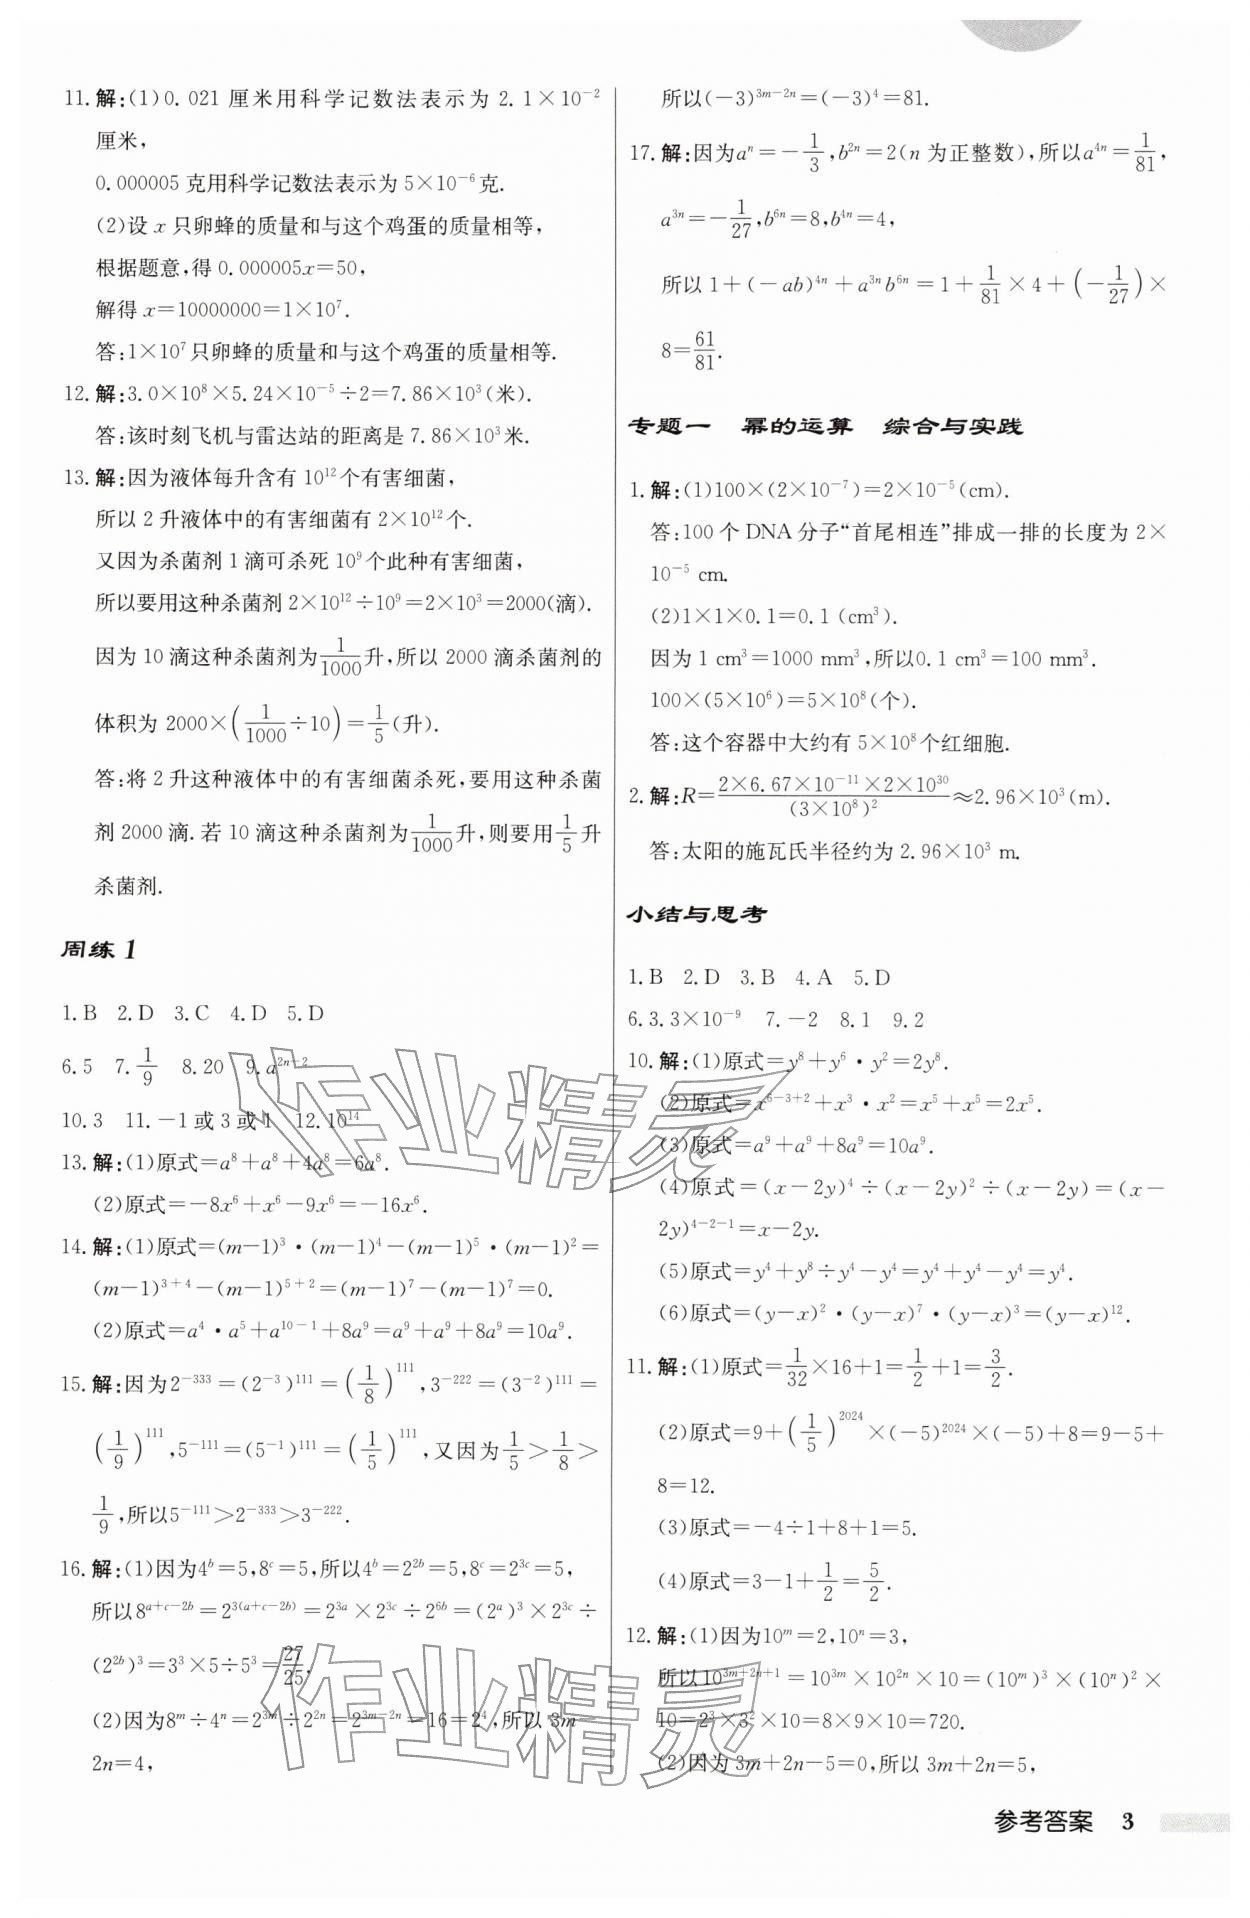 11. 解:(1)0. 021 厘米用科学记数法表示为 2. 1×10⁻²
厘米,
0. 000005 克用科学记数法表示为 5×10⁻⁶ 克.
(2)设 x 只卵蜂的质量和与这个鸡蛋的质量相等,
根据题意,得 0. 000005x=50,
解得 x=10000000=1×10⁷.
答:1×10⁷ 只卵蜂的质量和与这个鸡蛋的质量相等.
12. 解:3. 0×10⁸×5. 24×10⁻⁵÷2=7. 86×10³(米).
答:该时刻飞机与雷达站的距离是 7. 86×10³ 米.
13. 解:因为液体每升含有 10¹² 个有害细菌,
所以 2 升液体中的有害细菌有 2×10¹² 个.
又因为杀菌剂 1 滴可杀死 10⁹ 个此种有害细菌,
所以要用这种杀菌剂 2×10¹²÷10⁹=2×10³=2000(滴).
因为 10 滴这种杀菌剂为 1/1000 升,所以 2000 滴杀菌剂的
体积为 2000×(1/1000÷10)=1/5(升).
答:将 2 升这种液体中的有害细菌杀死,要用这种杀菌
剂 2000 滴. 若 10 滴这种杀菌剂为 1/1000 升,则要用 1/5 升
杀菌剂.
周练 1
1. B 2. D 3. C 4. D 5. D
6. 5 7. 1/9 8. 20 9. a²ⁿ⁻²
10. 3 11. -1 或 3 或 1 12. 10¹⁴
13. 解:(1)原式=a⁸+a⁸+4a⁸=6a⁸.
(2)原式=-8x⁶+x⁶-9x⁶=-16x⁶.
14. 解:(1)原式=(m-1)³·(m-1)⁴-(m-1)⁵·(m-1)²=
(m-1)³⁺⁴-(m-1)⁵⁺²=(m-1)⁷-(m-1)⁷=0.
(2)原式=a⁴·a⁵+a¹⁰⁻¹+8a⁹=a⁹+a⁹+8a⁹=10a⁹.
15. 解:因为 2⁻³³³=(2⁻³)¹¹¹=(1/8)¹¹¹,3⁻²²²=(3⁻²)¹¹¹=
(1/9)¹¹¹,5⁻¹¹¹=(5⁻¹)¹¹¹=(1/5)¹¹¹,又因为 1/5>1/8>
1/9,所以5⁻¹¹¹>2⁻³³³>3⁻²²².
16. 解:(1)因为4ᵇ=5,8ᶜ=5,所以4ᵇ=2²ᵇ=5,8ᶜ=2³ᶜ=5,
所以8ᵃ⁺ᶜ⁻²ᵇ=2³⁽ᵃ⁺ᶜ⁻²ᵇ⁾=2³ᵃ×2³ᶜ÷2⁶ᵇ=(2ᵃ)³×2³ᶜ÷
(2²ᵇ)³=3³×5÷5³=27/25.
(2)因为8ᵐ÷4ⁿ=2³ᵐ÷2²ⁿ=2³ᵐ⁻²ⁿ=16=2⁴,所以 3m-
2n=4,
所以(-3)³ᵐ⁻²ⁿ=(-3)⁴=81.
17. 解:因为aⁿ=-1/3,b²ⁿ=2(n 为正整数),所以a⁴ⁿ=1/81,
a³ⁿ=-1/27,b⁶ⁿ=8,b⁴ⁿ=4,
所以 1+(-ab)⁴ⁿ+a³ⁿb⁶ⁿ=1+1/81×4+(-1/27)×
8=61/81.
专题一 幂的运算 综合与实践
1. 解:(1)100×(2×10⁻⁷)=2×10⁻⁵(cm).
答:100 个 DNA 分子“首尾相连”排成一排的长度为 2×
10⁻⁵ cm.
(2)1×1×0. 1=0. 1 (cm³).
因为 1 cm³=1000 mm³,所以0. 1 cm³=100 mm³.
100×(5×10⁶)=5×10⁸(个).
答:这个容器中大约有 5×10⁸ 个红细胞.
2. 解:R=2×6. 67×10⁻¹¹×2×10³⁰/(3×10⁸)²≈2. 96×10³(m).
答:太阳的施瓦氏半径约为 2. 96×10³ m.
小结与思考
1. B 2. D 3. B 4. A 5. D
6. 3. 3×10⁻⁹ 7. -2 8. 1 9. 2
10. 解:(1)原式=y⁸+y⁶·y²=2y⁸.
(2)原式=x⁶⁻³⁺²+x³·x²=x⁵+x⁵=2x⁵.
(3)原式=a⁹+a⁹+8a⁹=10a⁹.
(4)原式=(x-2y)⁴÷(x-2y)²÷(x-2y)=(x-
2y)⁴⁻²⁻¹=x-2y.
(5)原式=y⁴+y⁸÷y⁴-y⁴=y⁴+y⁴-y⁴=y⁴.
(6)原式=(y-x)²·(y-x)⁷·(y-x)³=(y-x)¹².
11. 解:(1)原式=1/32×16+1=1/2+1=3/2.
(2)原式=9+(1/5)²⁰²⁴×(-5)²⁰²⁴×(-5)+8=9-5+
8=12.
(3)原式=-4÷1+8+1=5.
(4)原式=3-1+1/2=5/2.
12. 解:(1)因为10ᵐ=2,10ⁿ=3,
所以10³ᵐ⁺²ⁿ⁺¹=10³ᵐ×10²ⁿ×10=(10ᵐ)³×(10ⁿ)²×
10=2³×3²×10=8×9×10=720.
(2)因为 3m+2n-5=0,所以 3m+2n=5,
作业精灵
作业精灵
参考答案 3